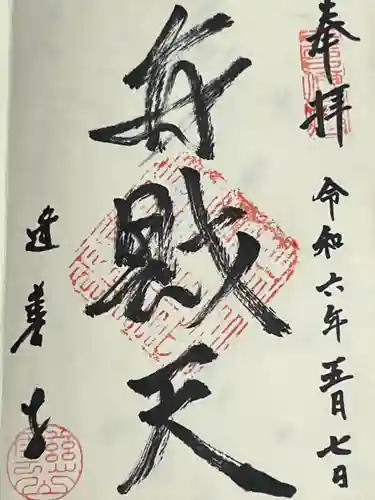 奉拝
令和六年五月七日
弁財天
建善寺